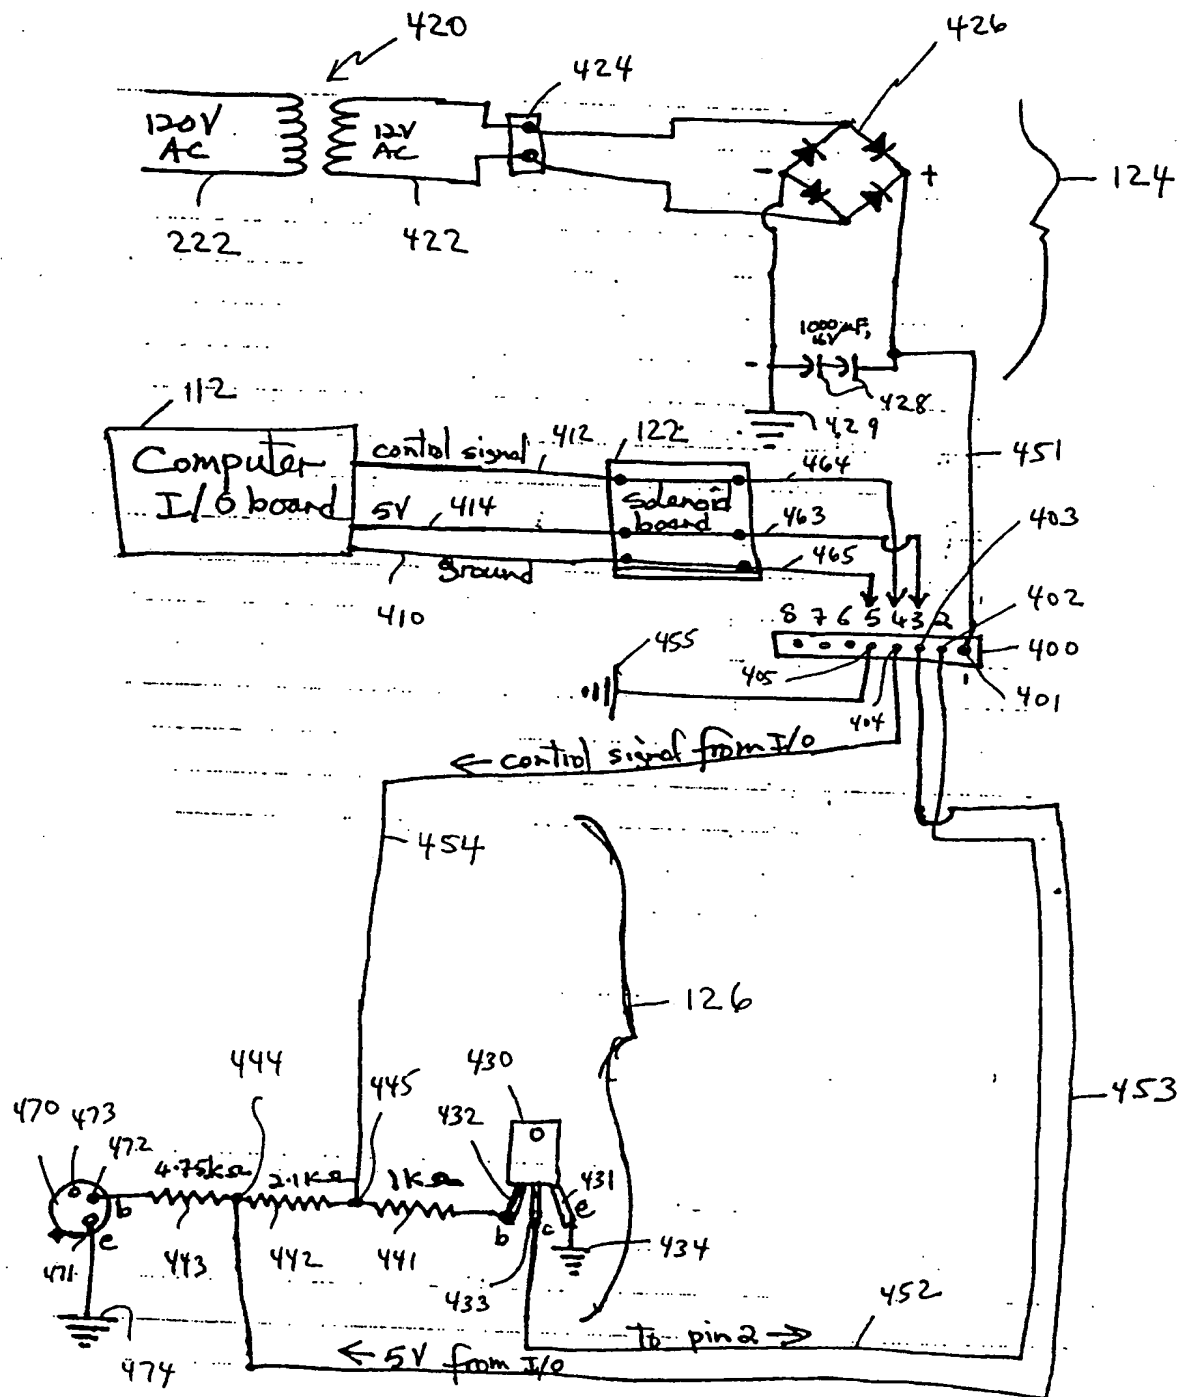 420
426
424
120V
AC
12V
AC
-
+
124
222
422
1000µF,
16V
-
428
429
112
Computer
I/O board
control signal
412
122
464
451
Solenoid
board
5V
414
463
403
465
ground
410
402
8 7 6 5 4 3 2
455
400
405
404
401
← control signal from I/O
454
126
444
445
430
453
470
473
472
432
4.75kΩ
2.1kΩ
1kΩ
431
b
e
b
c
e
471
443
442
441
434
433
452
To pin 2 →
← 5V from I/O
474